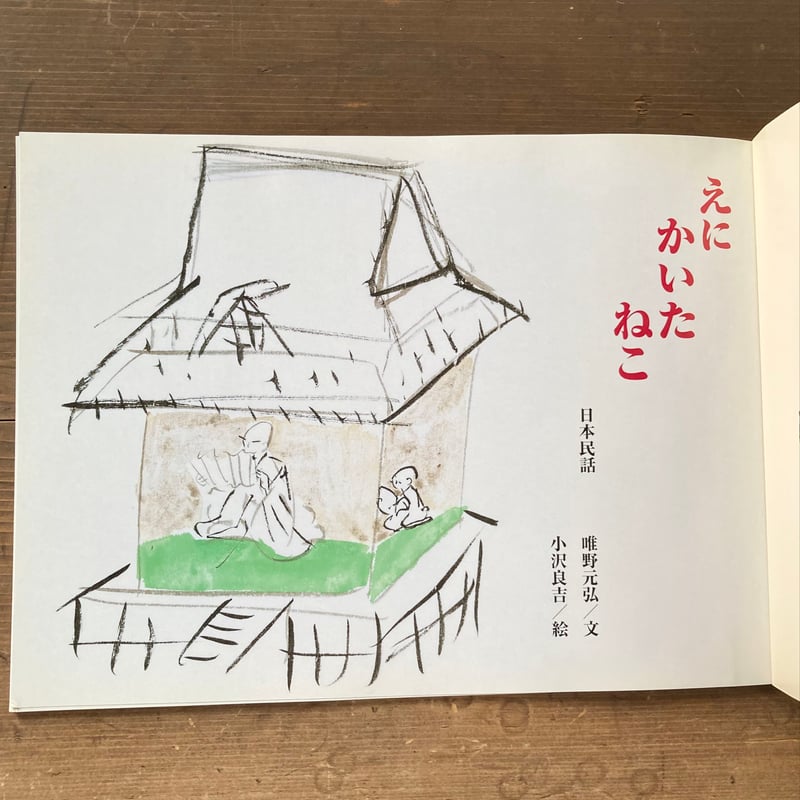 えに
かいた
ねこ
日本民話
唯野元弘/文
小沢良吉/絵